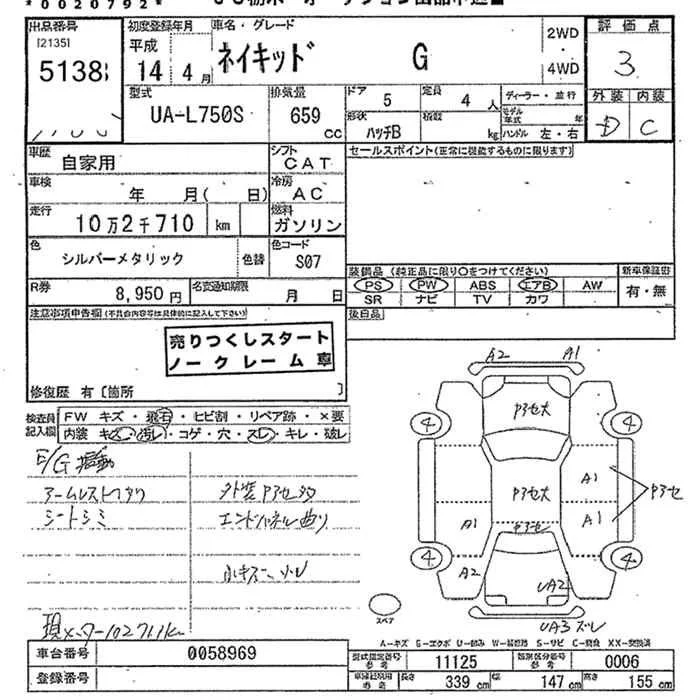 *0020792*
出品番号 初度登録年月 車名・グレード 2WD 評価点
[2135]
平成 ネイキッド G 3
5138
14 4月 4WD
型式 排気量 ドア 5 定員 4人 ディーラー・並行 外装 内装
UA-L750S 659 cc 形状 ハッチB 積載 kg モデル年式 年 ハンドル 左・右 D C
車歴 自家用 シフト CAT セールスポイント(正常に機能するものに限ります)
車検 年 月( 日) 冷房 AC
走行 10万2千710 km 燃料 ガソリン
色 シルバーメタリック 色替 色コード S07
装備品 (純正品に限り○をつけてください) 新車保証書
R券 8,950円 名変通知期限 月 日 PS PW ABS エアB AW 有・無
SR ナビ TV カワ
注意事項申告欄(不具合内容等は具体的に記入して下さい) 後日品
売りつくしスタート
ノークレーム車
修復歴 有〔箇所 〕
検査員記入欄 FW キズ・飛石・ヒビ割・リペア跡・×要
内装 キズ・汚レ・コゲ・穴・スレ・キレ・破レ
A2 A1
4 4
Pアセ大
E/G
シートシミ 外装Pアセ多
エンドパネル曲り
Pアセ大 A1 Pアセ
A1 Pアセ A1
4 4
A2 UA2
スペア
UA3 ズレ
現メーター102711km
A-キズ
車台番号 0058969 型式指定番号 参考 11125 類別区分番号 参考 0006
登録番号 長さ 339cm 幅 147cm 高さ 155cm